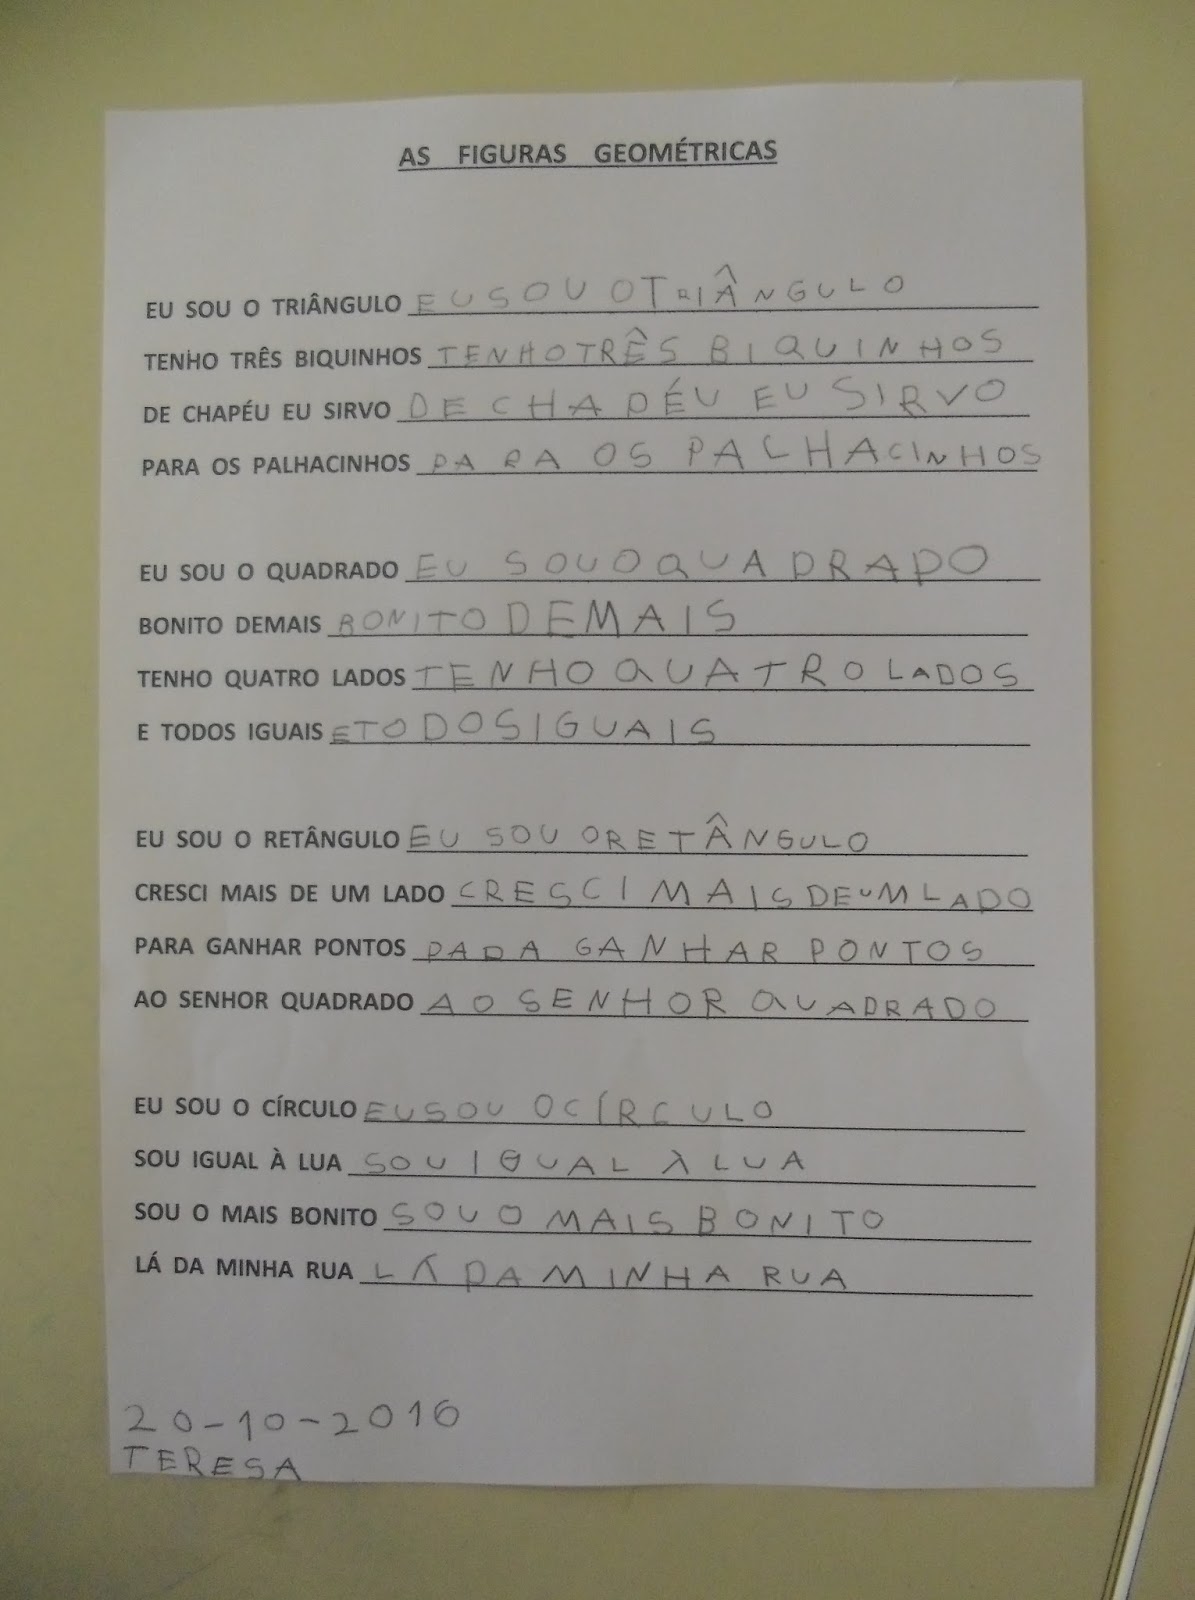 AS FIGURAS GEOMÉTRICAS
EU SOU O TRIÂNGULO EU SOU O TRIÂNGULO
TENHO TRÊS BIQUINHOS TENHO TRÊS BIQUINHOS
DE CHAPÉU EU SIRVO DE CHAPÉU EU SIRVO
PARA OS PALHACINHOS PARA OS PALHACINHOS
EU SOU O QUADRADO EU SOU O QUADRADO
BONITO DEMAIS BONITO DEMAIS
TENHO QUATRO LADOS TENHO QUATRO LADOS
E TODOS IGUAIS E TODOS IGUAIS
EU SOU O RETÂNGULO EU SOU O RETÂNGULO
CRESCI MAIS DE UM LADO CRESCI MAIS DE UM LADO
PARA GANHAR PONTOS PARA GANHAR PONTOS
AO SENHOR QUADRADO AO SENHOR QUADRADO
EU SOU O CÍRCULO EU SOU O CÍRCULO
SOU IGUAL À LUA SOU IGUAL À LUA
SOU O MAIS BONITO SOU O MAIS BONITO
LÁ DA MINHA RUA LÁ DA MINHA RUA
20-10-2016
TERESA